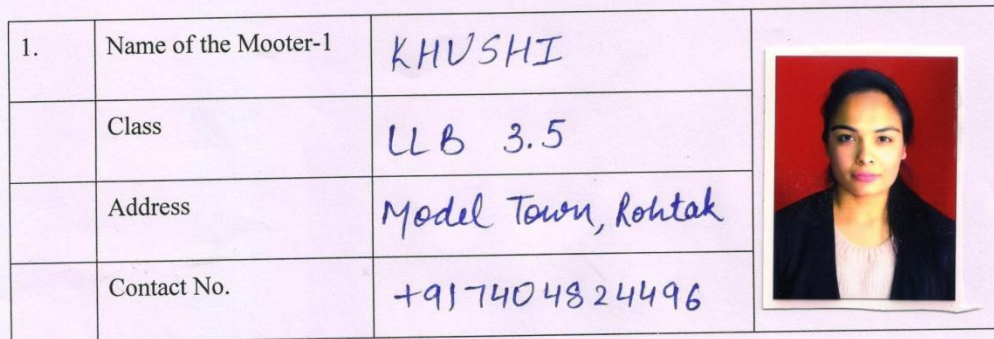 1. Name of the Mooter-1 KHUSHI
Class LLB 3.5
Address Model Town, Rohtak
Contact No. +917404824496